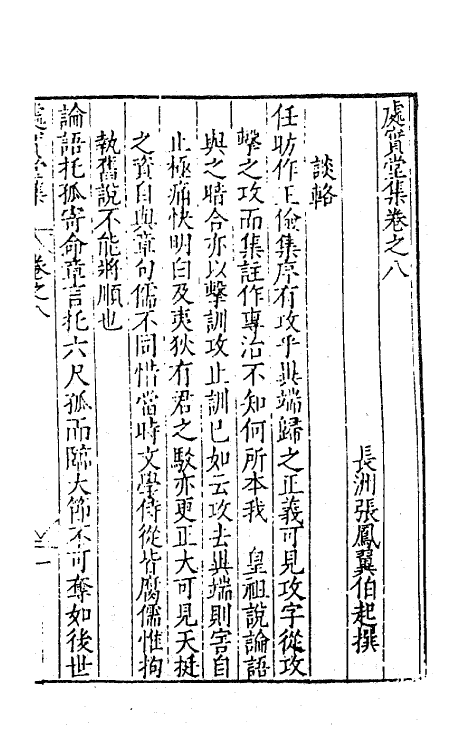 處實堂集卷之八
長洲張鳳翼伯起撰
談輅
任昉作王儉集序有攻乎異端歸之正義可見攻字從攻
擊之攻而集註作專治不知何所本我 皇祖說論語
與之暗合亦以擊訓攻止訓已如云攻去異端則害自
止極痛快明白及夷狄有君之駁亦更正大可見天挺
之資自與章句儒不同惜當時文學侍從皆腐儒惟拘
執舊說不能將順也
論語托孤寄命章言托六尺孤而臨大節不可奪如後世
處實堂集 卷之八 一